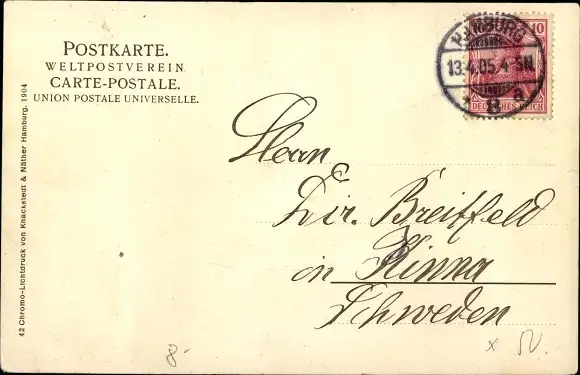 POSTKARTE.
WELTPOSTVEREIN
CARTE-POSTALE.
UNION POSTALE UNIVERSELLE.
42 Chromo-Lichtdruck von Knackstedt & Näther Hamburg. 1904
10
DEUTSCHES REICH
HAMBURG
13.4.05.4-5N
* 8 a
Herrn
Dir. Breiffeld
in Kinna
Schweden
8-
x